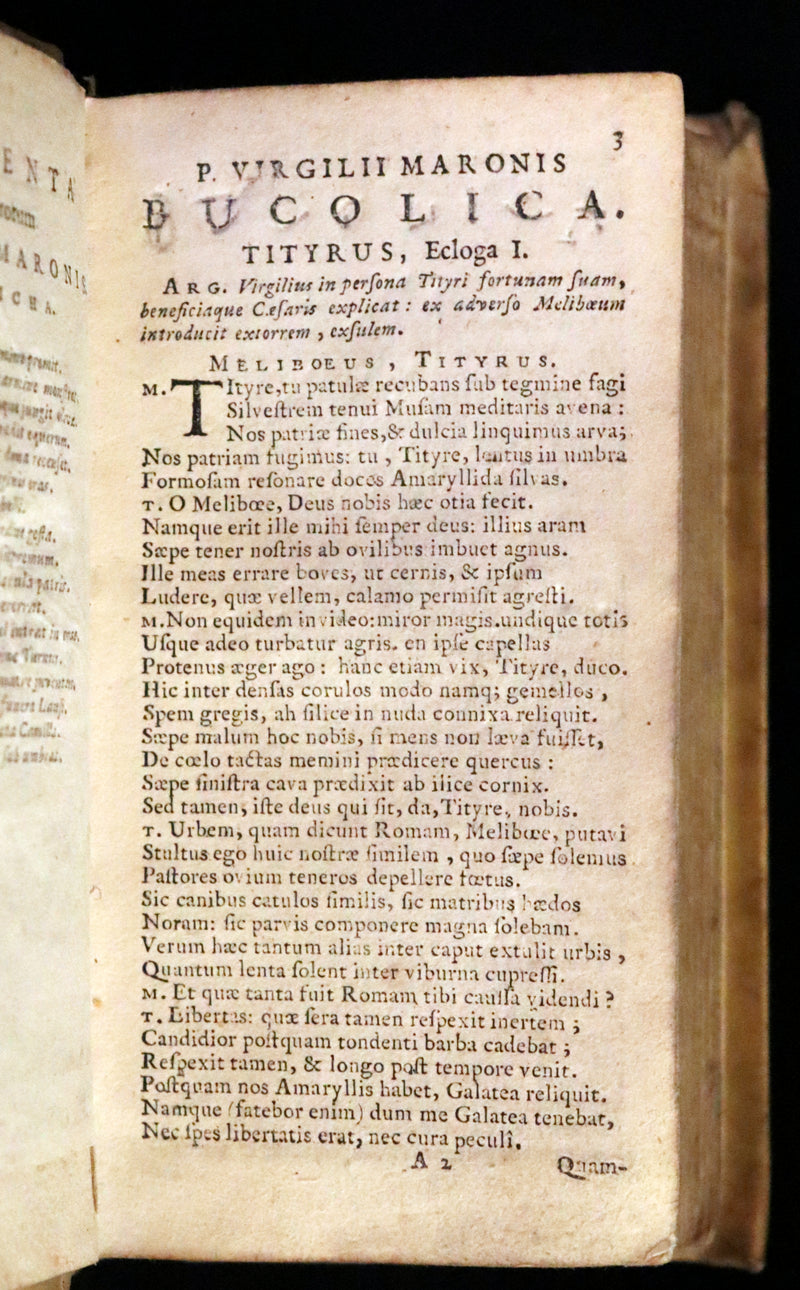 3
P. VIRGILII MARONIS
BUCOLICA.
TITYRUS, Ecloga I.
ARG. Virgilius in perſona Tityri fortunam ſuam,
beneficiaque Cæſaris explicat: ex adverſo Melibœum
introducit extorrem, exſulem.
MELIBOEUS, TITYRUS.
M. TItyre, tu patulæ recubans ſub tegmine fagi
Silveſtrem tenui Muſam meditaris avena:
Nos patriæ fines, & dulcia linquimus arva;
Nos patriam fugimus: tu, Tityre, lentus in umbra
Formoſam reſonare doces Amaryllida ſilvas.
T. O Melibœe, Deus nobis hæc otia fecit.
Namque erit ille mihi ſemper deus: illius aram
Sæpe tener noſtris ab ovilibus imbuet agnus.
Ille meas errare boves, ut cernis, & ipſum
Ludere, quæ vellem, calamo permiſit agreſti.
M. Non equidem invideo: miror magis. undique totis
Uſque adeo turbatur agris. en ipſe capellas
Protenus æger ago: hanc etiam vix, Tityre, duco.
Hic inter denſas corulos modo namq; gemellos,
Spem gregis, ah ſilice in nuda connixa reliquit.
Sæpe malum hoc nobis, ſi mens non læva fuiſſet,
De cœlo tactas memini prædicere quercus:
Sæpe ſiniſtra cava prædixit ab ilice cornix.
Sed tamen, iſte deus qui ſit, da, Tityre, nobis.
T. Urbem, quam dicunt Romam, Melibœe, putavi
Stultus ego huic noſtræ ſimilem, quo ſæpe ſolemus
Paſtores ovium teneros depellere fœtus.
Sic canibus catulos ſimilis, ſic matribus hædos
Noram: ſic parvis componere magna ſolebam.
Verum hæc tantum alias inter caput extulit urbis,
Quantum lenta ſolent inter viburna cupreſſi.
M. Et quæ tanta fuit Romam tibi cauſſa videndi?
T. Libertas: quæ ſera tamen reſpexit inertem;
Candidior poſtquam tondenti barba cadebat;
Reſpexit tamen, & longo poſt tempore venit.
Poſtquam nos Amaryllis habet, Galatea reliquit.
Namque (fatebor enim) dum me Galatea tenebat,
Nec ſpes libertatis erat, nec cura peculî.
A 2
Quam-